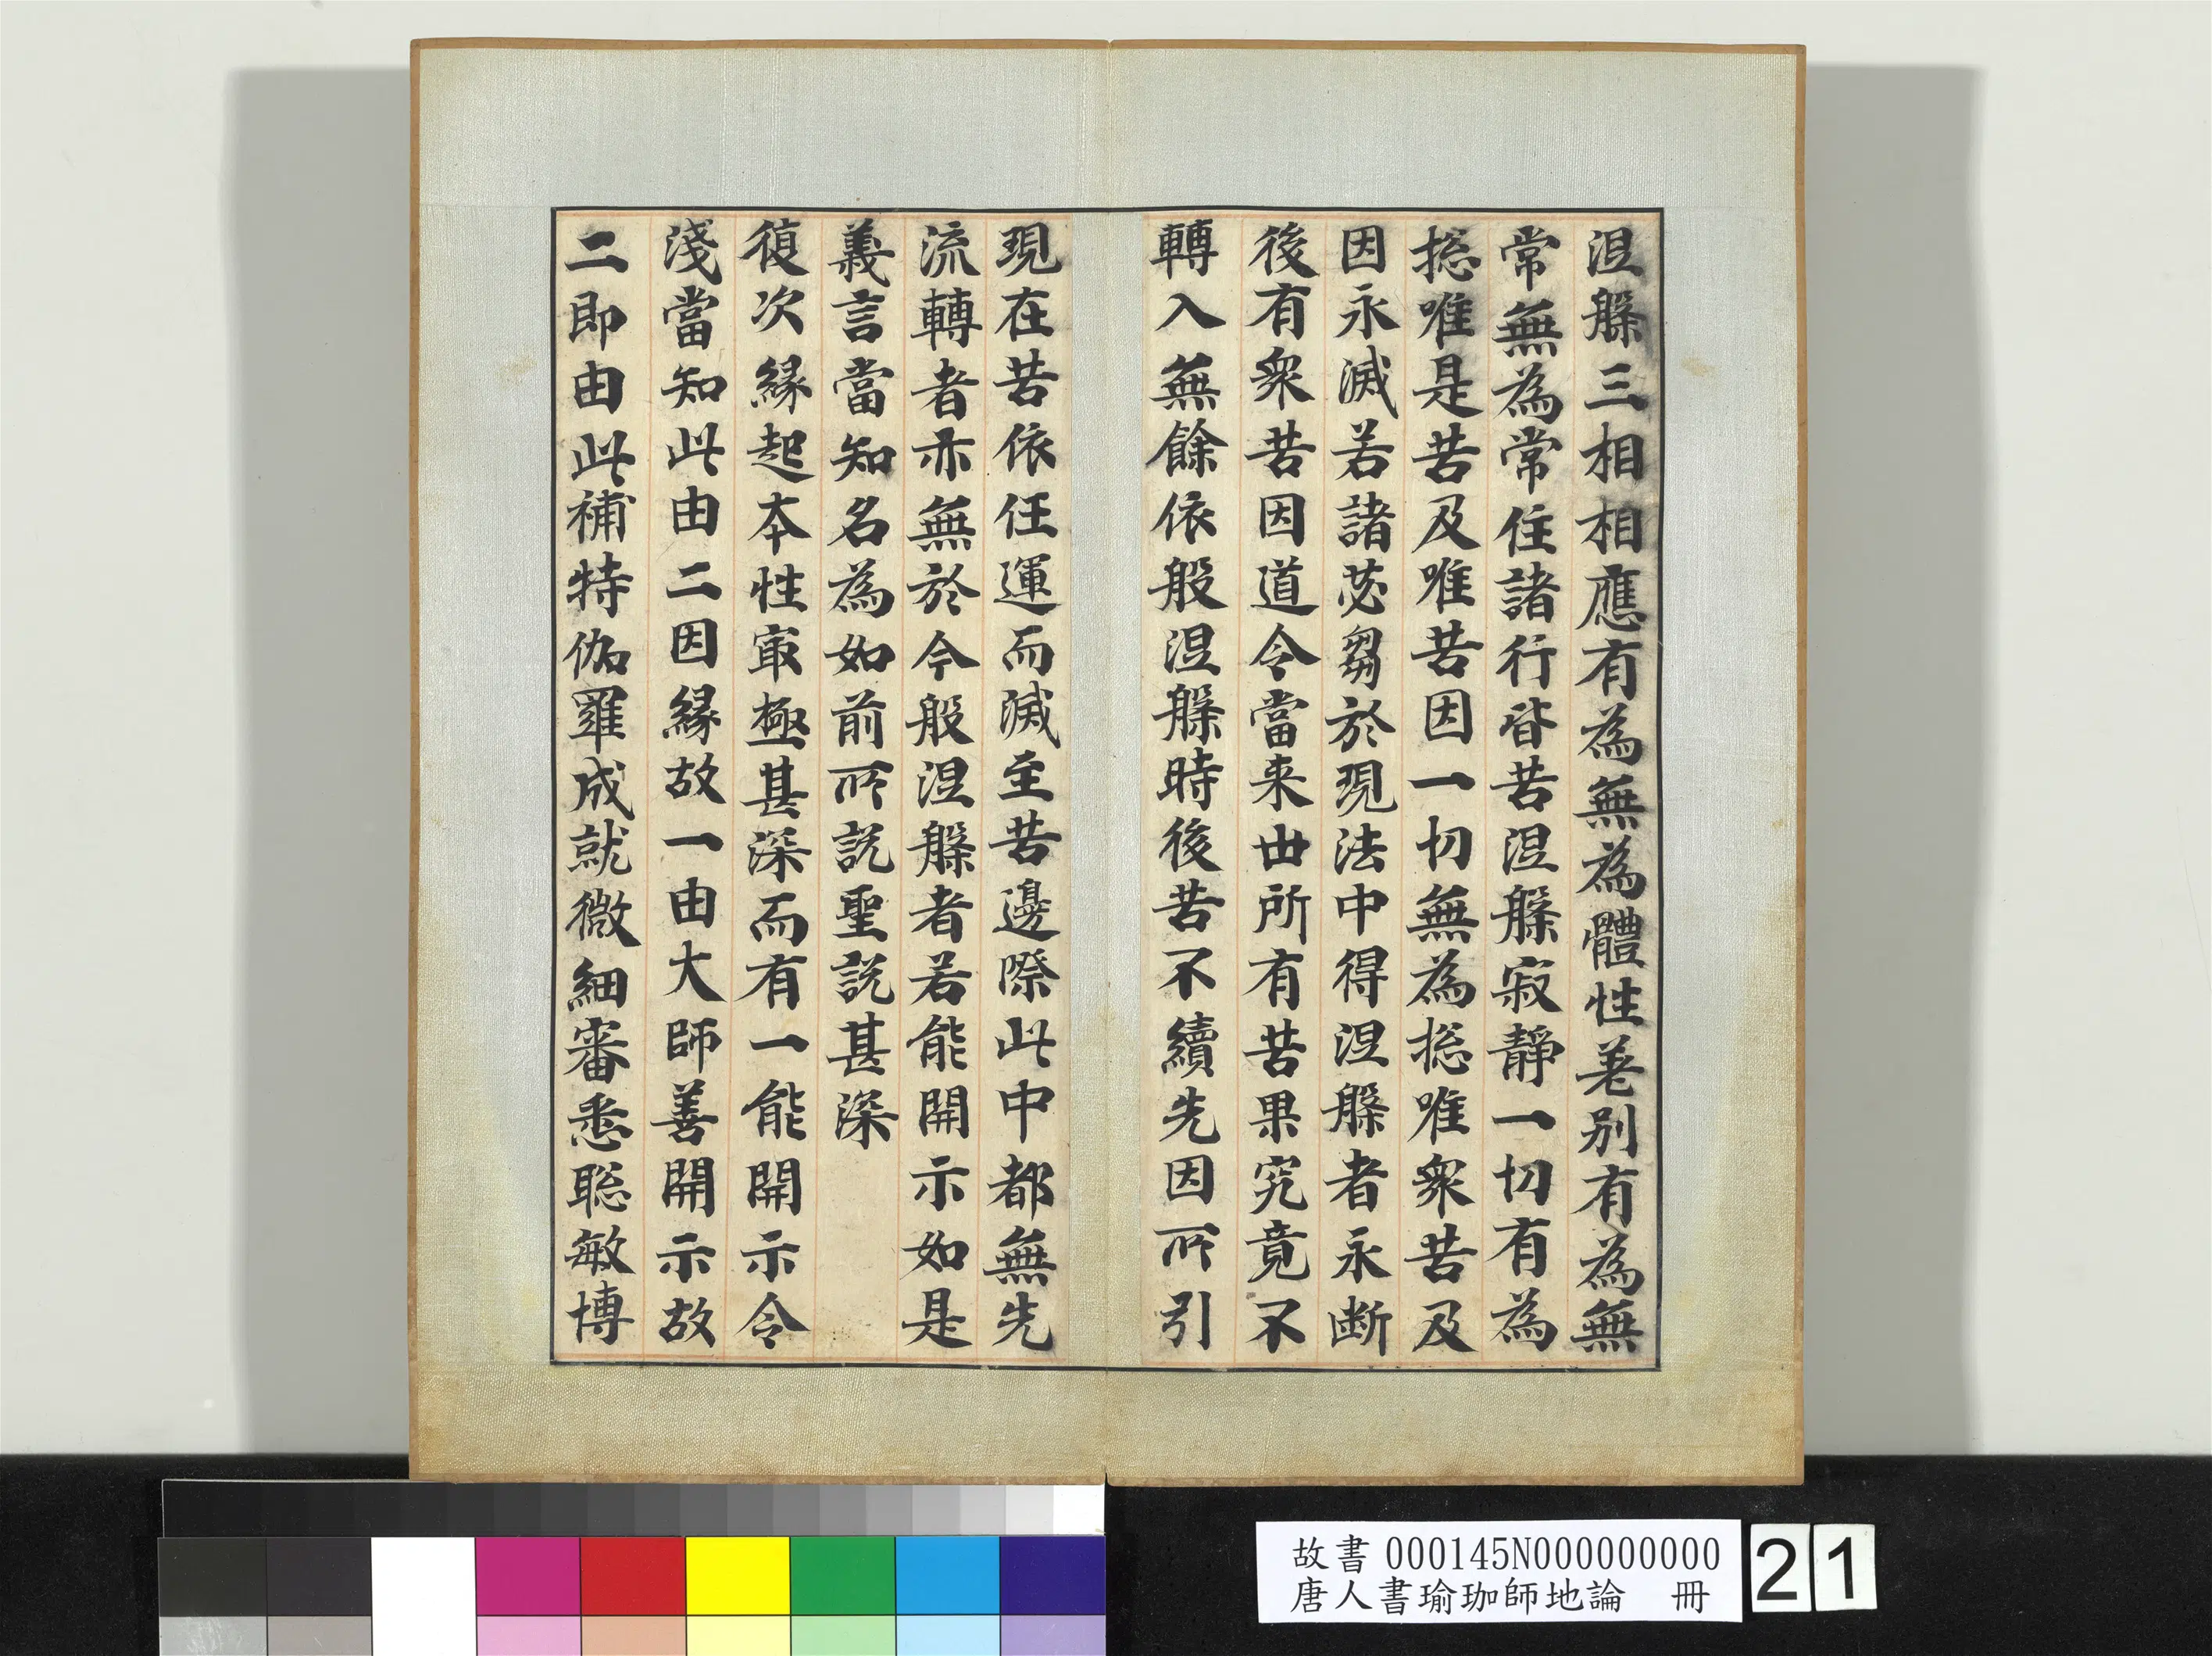 涅槃三相相應有為無為體性差別有為無
常無為常住諸行皆苦涅槃寂靜一切有為
揔唯是苦及唯苦因一切無為揔唯衆苦及
因永滅若諸苾芻於現法中得涅槃者永斷
後有衆苦因道令當来世所有苦果究竟不
轉入無餘依般涅槃時後苦不續先因所引
現在苦依任運而滅至苦邊際此中都無先
流轉者亦無於今般涅槃者若能開示如是
義言當知名為如前所説聖説甚深
復次緣起本性冣極甚深而有一能開示令
淺當知此由二因緣故一由大師善開示故
二即由此補特伽羅成就微細審悉聡敏博
故書 000145N000000000
唐人書瑜珈師地論 冊
21